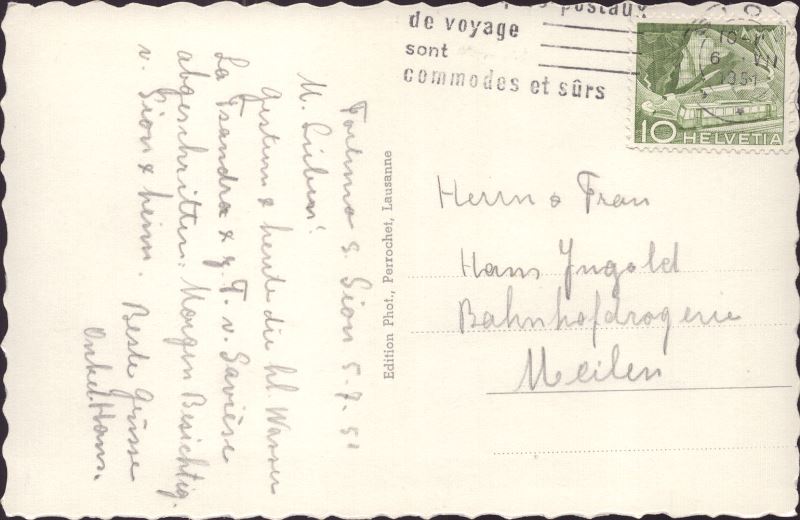 postaux
de voyage
sont
commodes et sûrs
10 HELVETIA
6 VII
1951
Sion 5.7.51
M. Lieben!
Gestern & heute die hl. Wasser
La Tsandra & z. T. v. Savièse
abgeschritten. Morgen Besichtig.
v. Sion & heim. Beste Grüsse
Onkel Hans.
Edition Phot., Perrochet, Lausanne
Herrn & Frau
Hans Ingold
Bahnhofdrogerie
Meilen